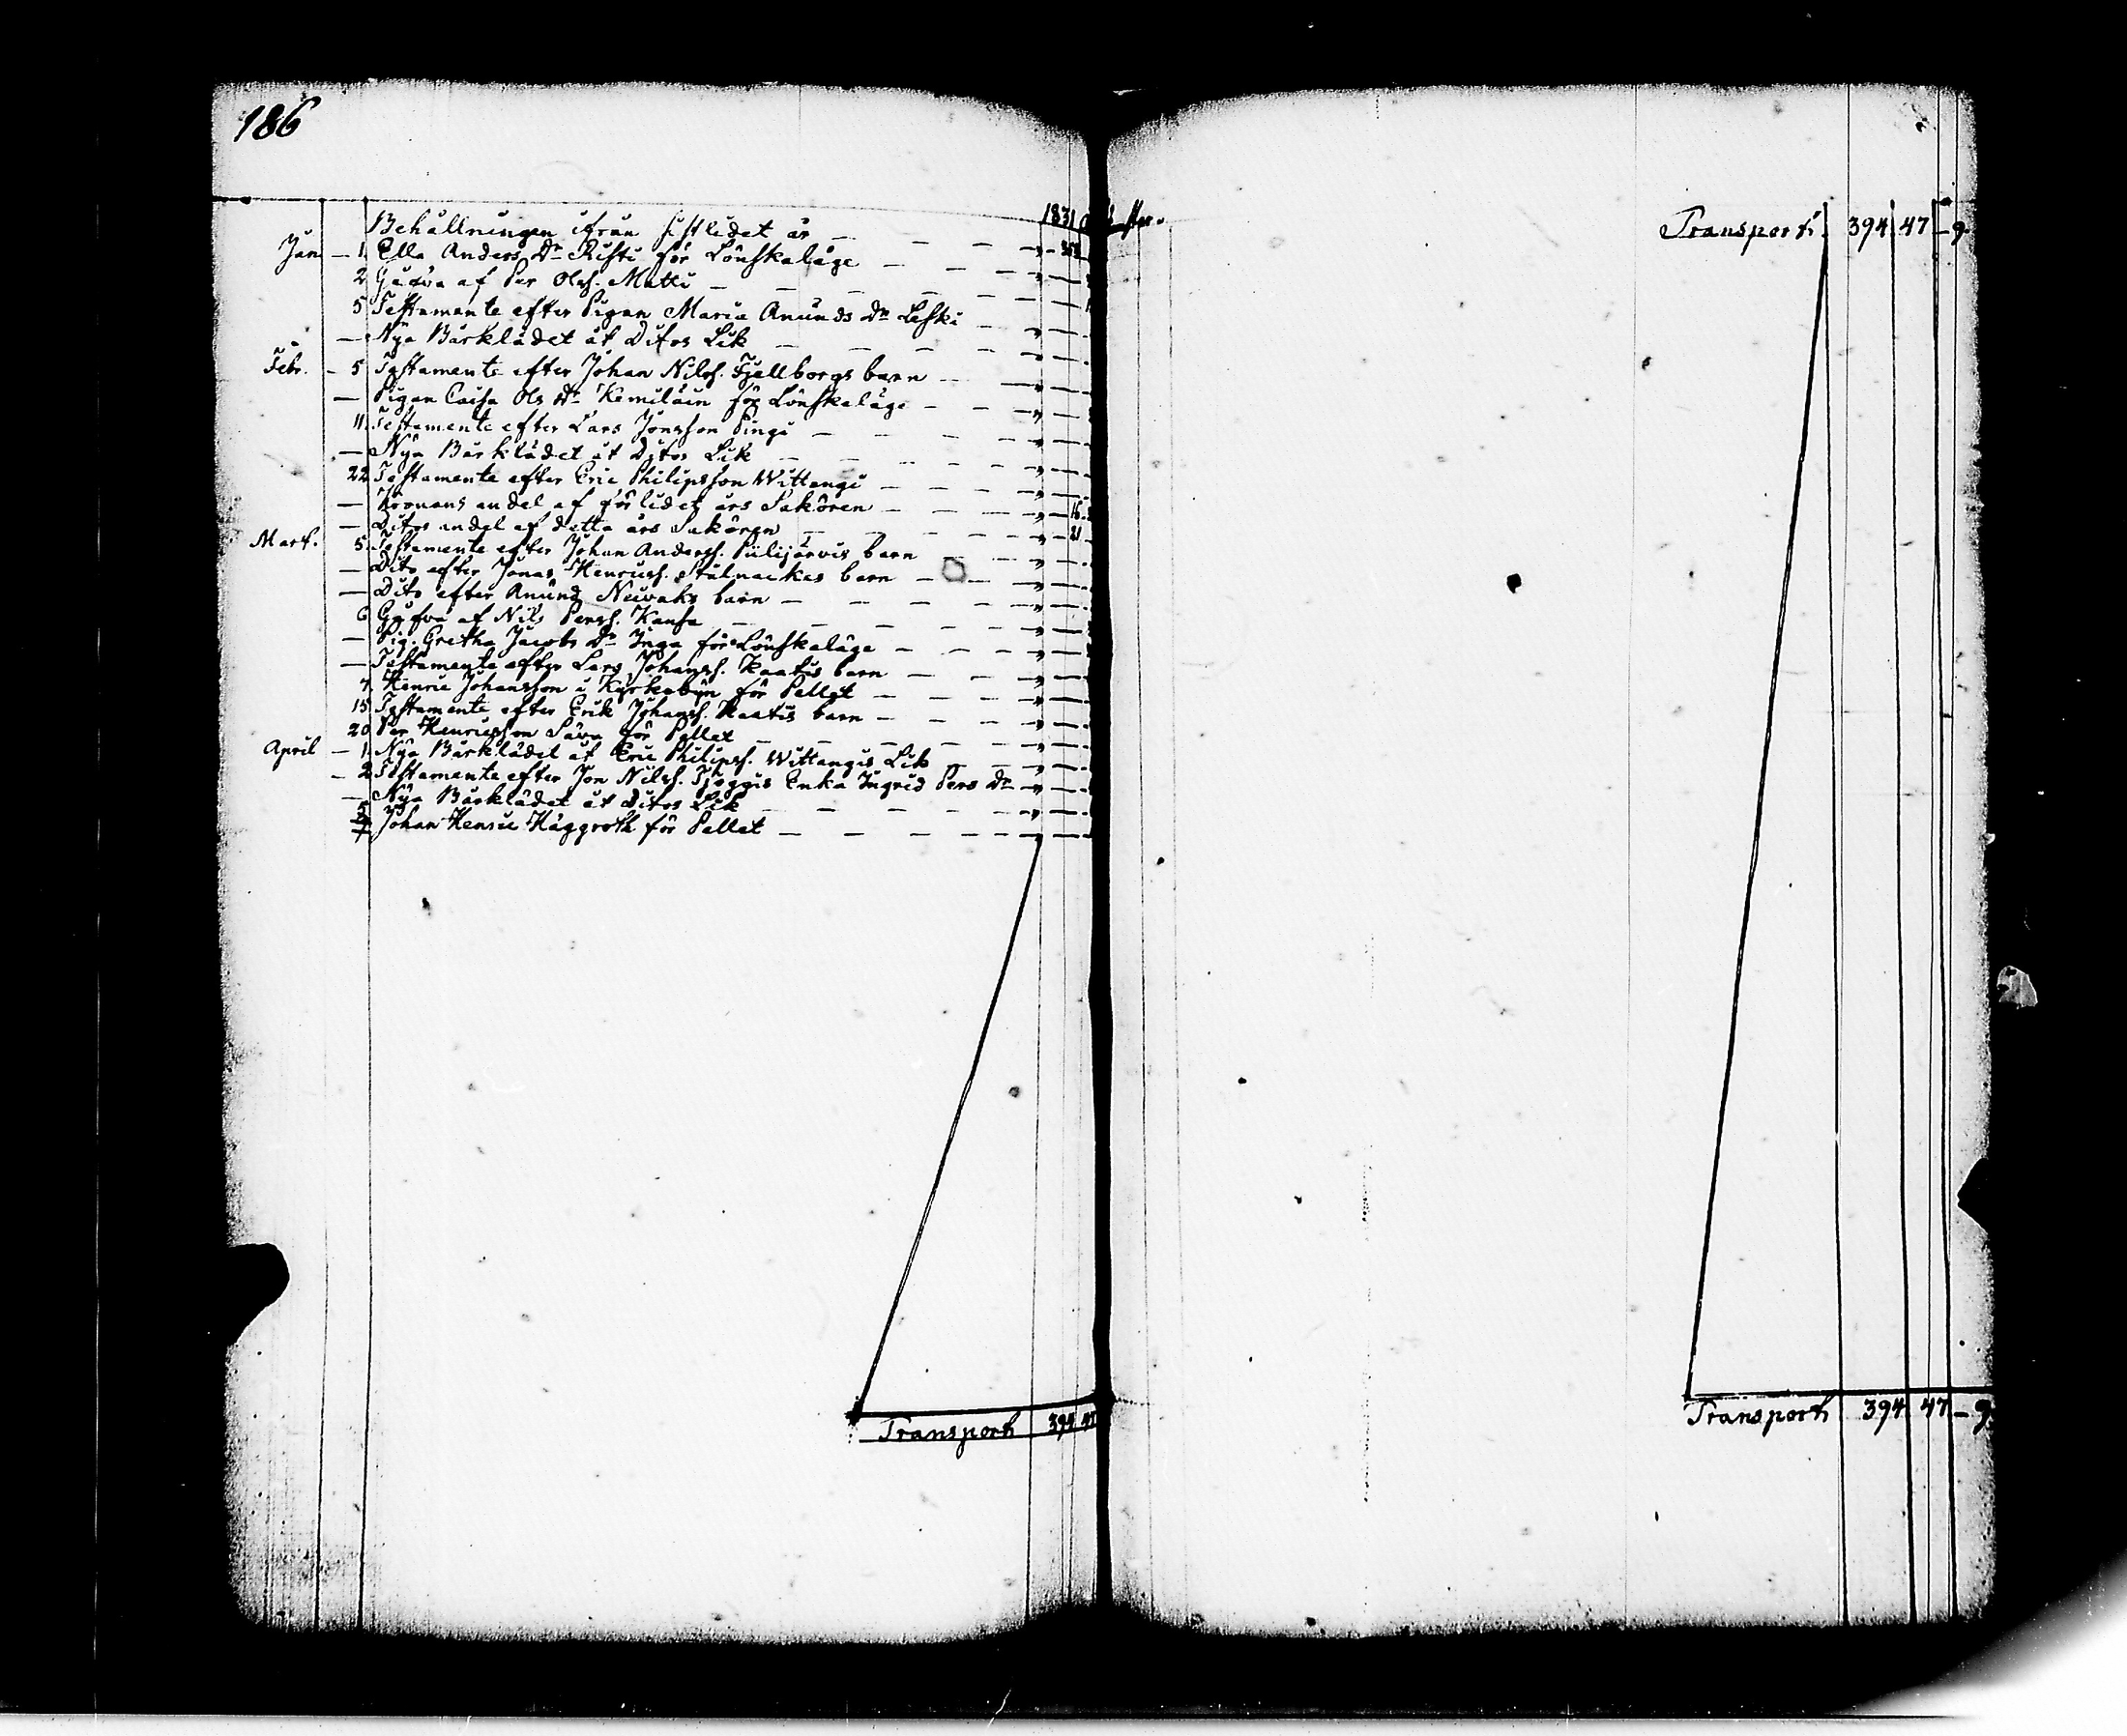 186
1831
Behållningen ifrån sistlidet år
Jan. – 1. Ella Anders Dr Risti för Lönskaläge
2. Gåfva af Per Olofs. Matti
5. Testamente efter Pigan Maria Anunds Dr Leski
— Nya Bårklädet åt Ditos Lik
Febr. – 5. Testamente efter Johan Nilss. Fjellborgs barn
— Pigan Caisa Ols Dr Kemiläin för Lönskaläge
11. Testamente efter Lars Jonsson Pingi
— Nya Bårklädet åt Ditos Lik
22. Testamente efter Eric Philipsson Wittangi
— Kronans andel af förlidet års Sakören – 16
— Ditos andel af detta års Sakören – 21
Mart. 5. Testamente efter Johan Anderss. Piilijärvis barn
— Dito efter Jonas Henricss. Stålnackes barn
— Dito efter Anund Neivaks barn
6. Gåfva af Nils Perss. Kansa
— Pig. Gretha Jacobs Dr Inga för Lönskaläge
— Testamente efter Lars Johanss. Kaatis barn
7. Henric Johansson i Kyrkobyn för Pallet
15. Testamente efter Erik Johanss. Kaatis barn
20. Per Henricsson för Pallet
April – 1. Nya Bårklädet åt Eric Philipss. Wittangis Lik
– 2. Testamente efter Jon Nilss. Enka Ingrid Pers Dr
— Nya Bårklädet åt Ditos Lik
Johan Henric Häggroth för Pallet
Transport 394 47
Transport. 394 47 – 9.
Transport 394 47 – 9.